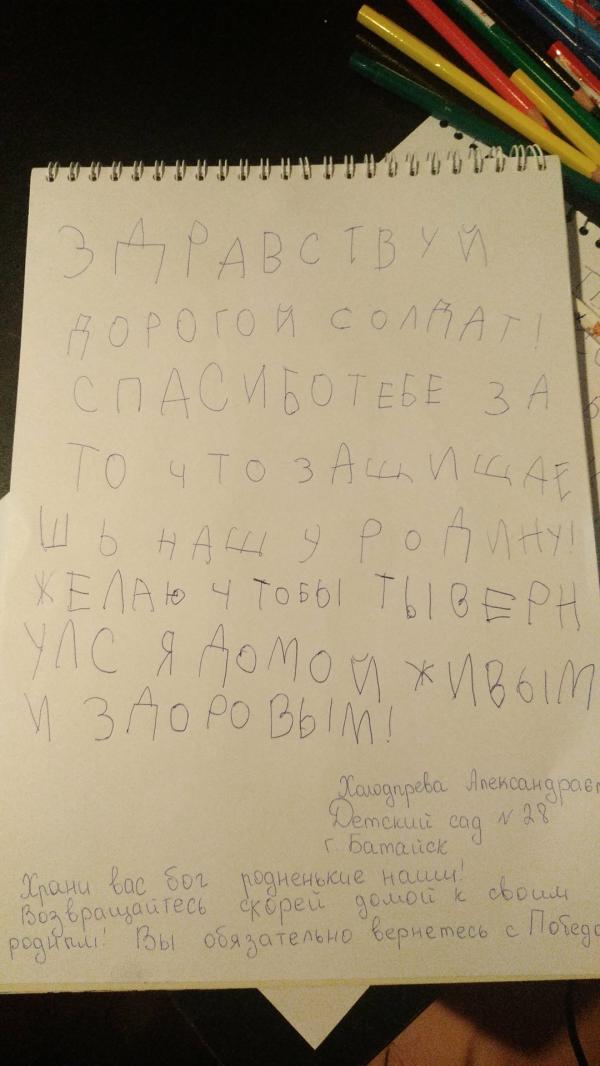 ЗДРАВСТВУЙ
ДОРОГОЙ СОЛДАТ!
СПАСИБОТЕБЕ ЗА
ТО ЧТО ЗАЩИЩАЕ
ШЬ НАШУ РОДИНУ!
ЖЕЛАЮ ЧТОБЫ ТЫВЕРН
УЛСЯ ДОМОЙ ЖИВЫМ
И ЗДОРОВЫМ!
Детский сад № 28
г. Батайск
Храни вас бог родненькие наши!
Возвращайтесь скорей домой к своим
родным! Вы обязательно вернетесь с